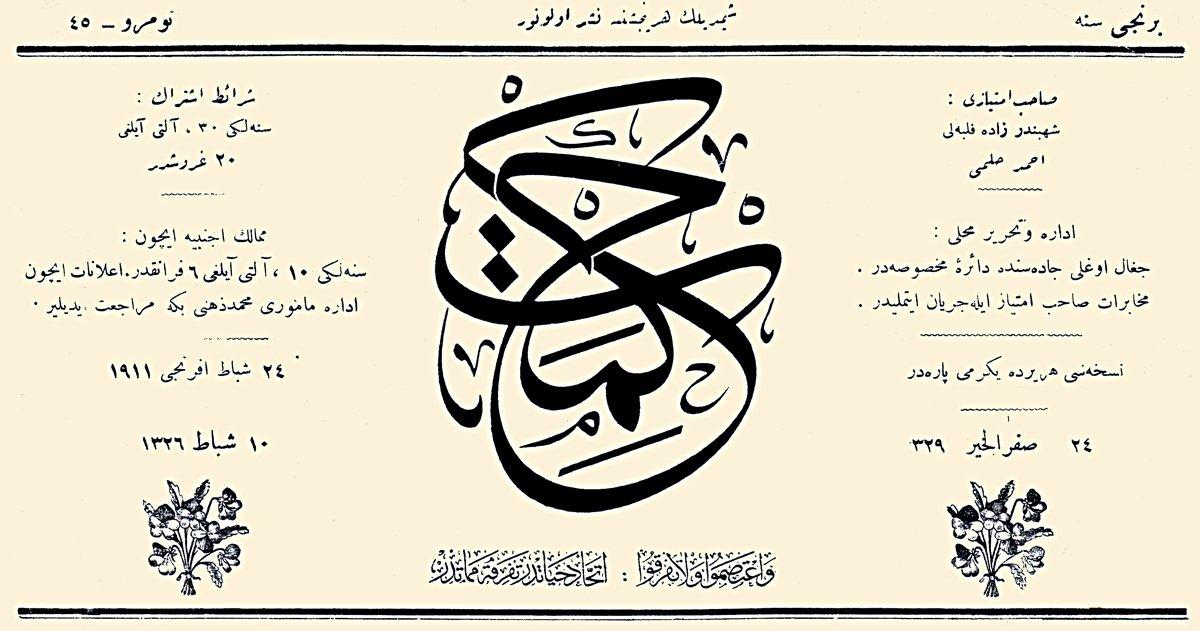 برنجی سنه
شیمدیلك هر پنجشنبه نشر اولونور
نومرو ــ ٤٥
صاحب امتیازی :
شهبندر زاده فلبه‌لی
احمد حلمی
اداره وتحریر محلی :
جغال اوغلی جاده‌سنده دائرهٔ مخصوصه‌در .
مخابرات صاحب امتیاز ایله جریان ایتملیدر .
نسخه‌سی هر یرده یكرمی پاره‌در
٢٤ صفر الخیر ٣٢٩
حكمت
شرائط اشتراك :
سنه‌لكی ٣٠ ، آلتی آیلغی
٢٠ غروشدر
ممالك اجنبیه ایچون :
سنه‌لكی ١٠ ، آلتی آیلغی ٦ فرانقدر. اعلانات ایچون
اداره مأموری محمد ذهنی بكه مراجعت ایدیلیر .
٢٤ شباط افرنجی ١٩١١
١٠ شباط ١٣٢٦
وَاعْتَصِمُوا وَلَا تَفَرَّقُوا : اتحاد حیاتدر تفرقه مماتدر